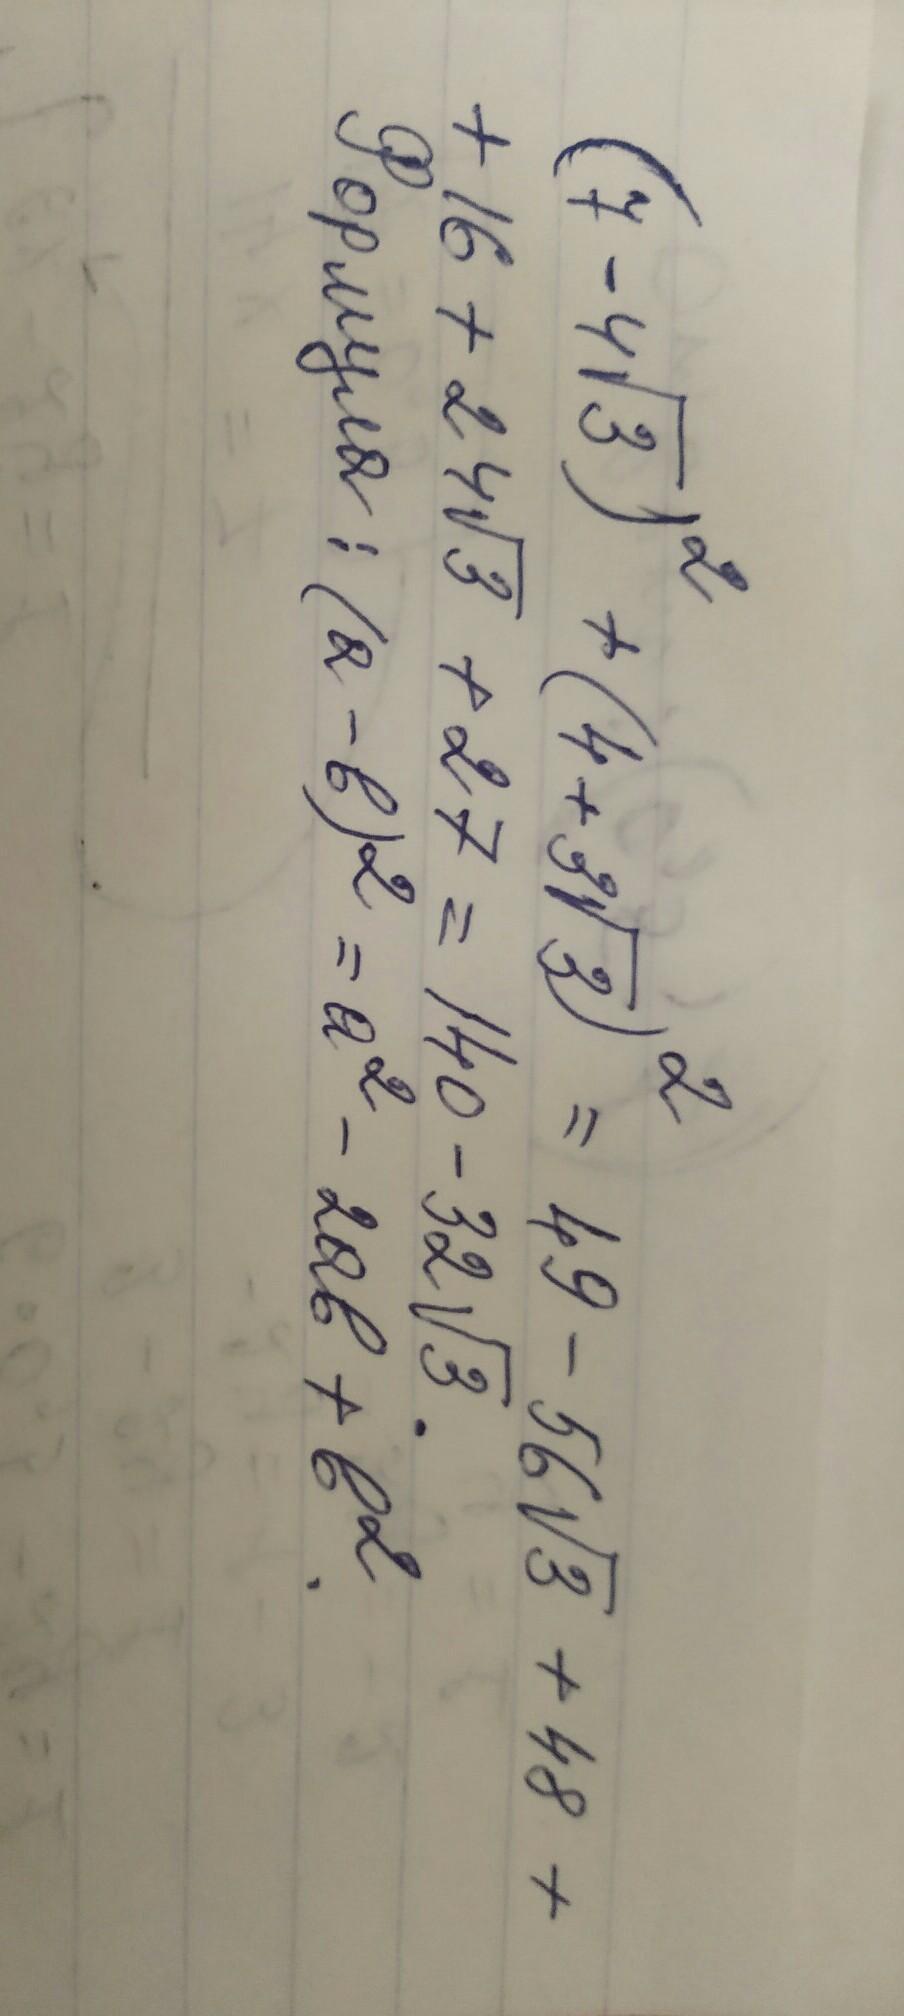 (7-4√3)² + (4+3√3)² = 49-56√3 + 48 +
+ 16 + 24√3 + 27 = 140-32√3.
Формула: (а-в)² = а² - 2ав + в².